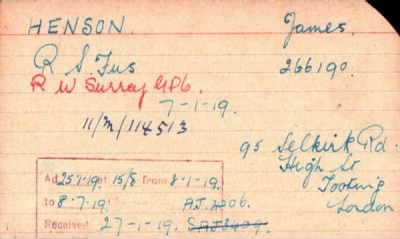 HENSON. James.
R. S. Fus 266190.
R W Surrey
7-1-19.
11/M/114513
95 Selkirk Rd.
High St
Tooting
London
Ad 25.1.19. at 15/8 from 8-1-19.
to 8.7.19.
Received 27-1-19.